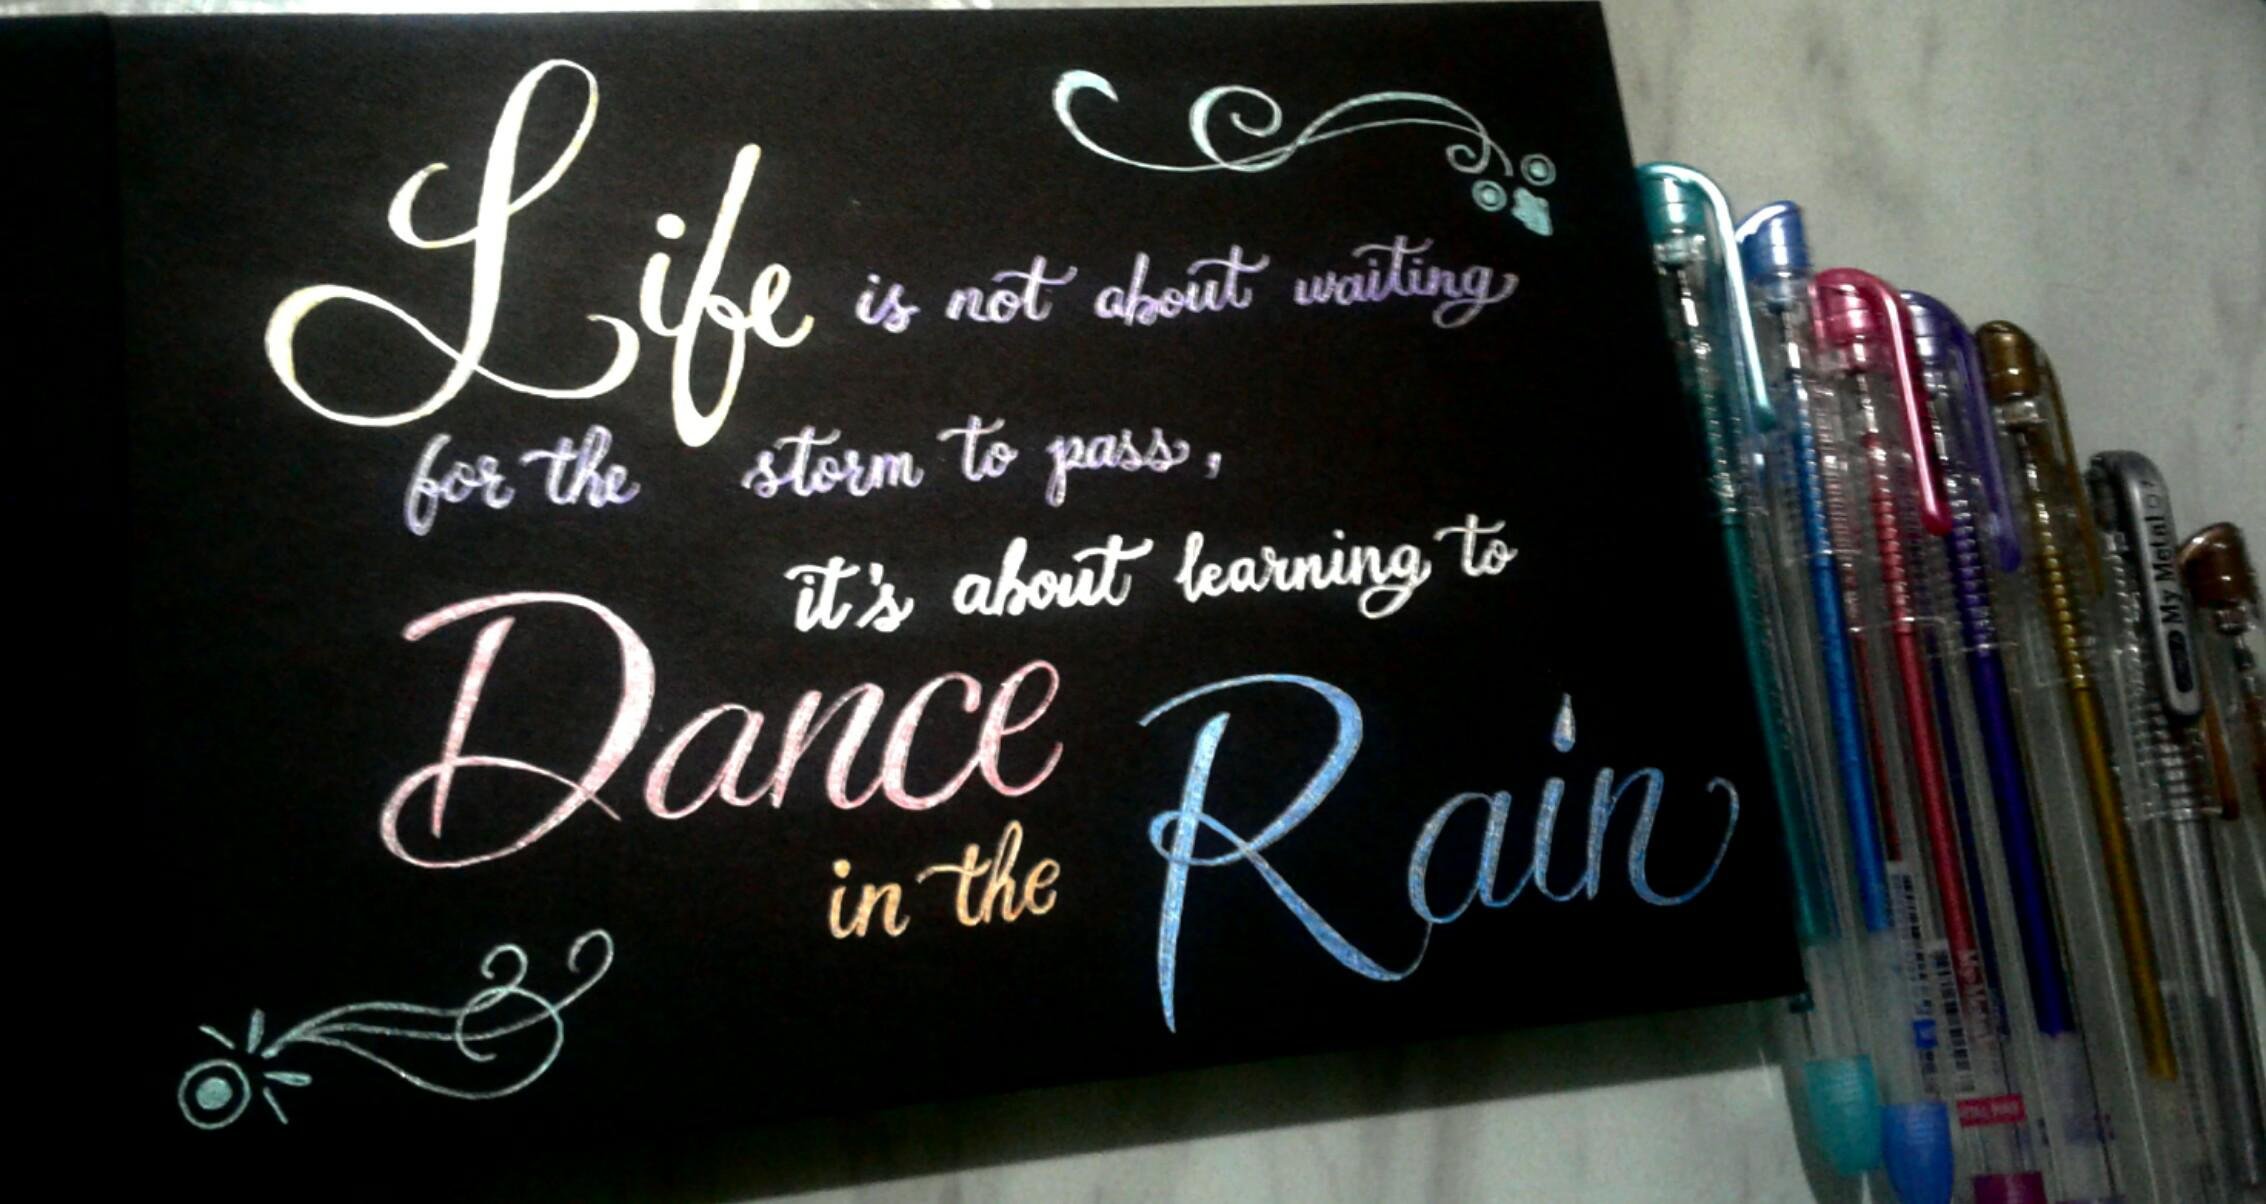 Life is not about waiting
for the storm to pass,
it's about learning to
Dance
in the
Rain
My Metal